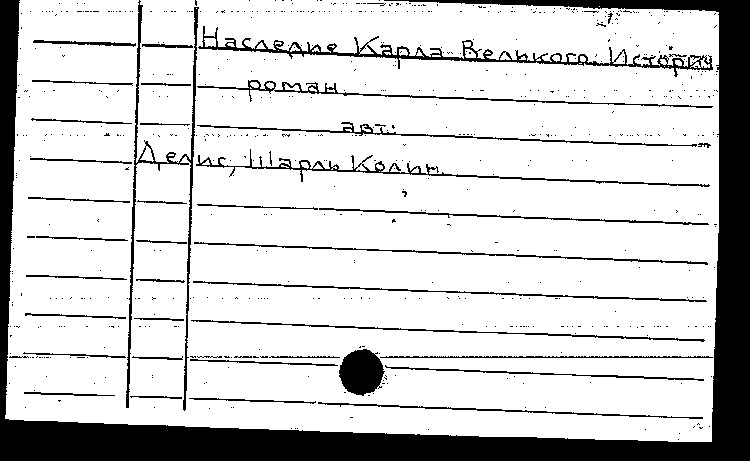 Наследие Карла Великого. Историч.
роман.
авт:
Делис, Шарль Колин.